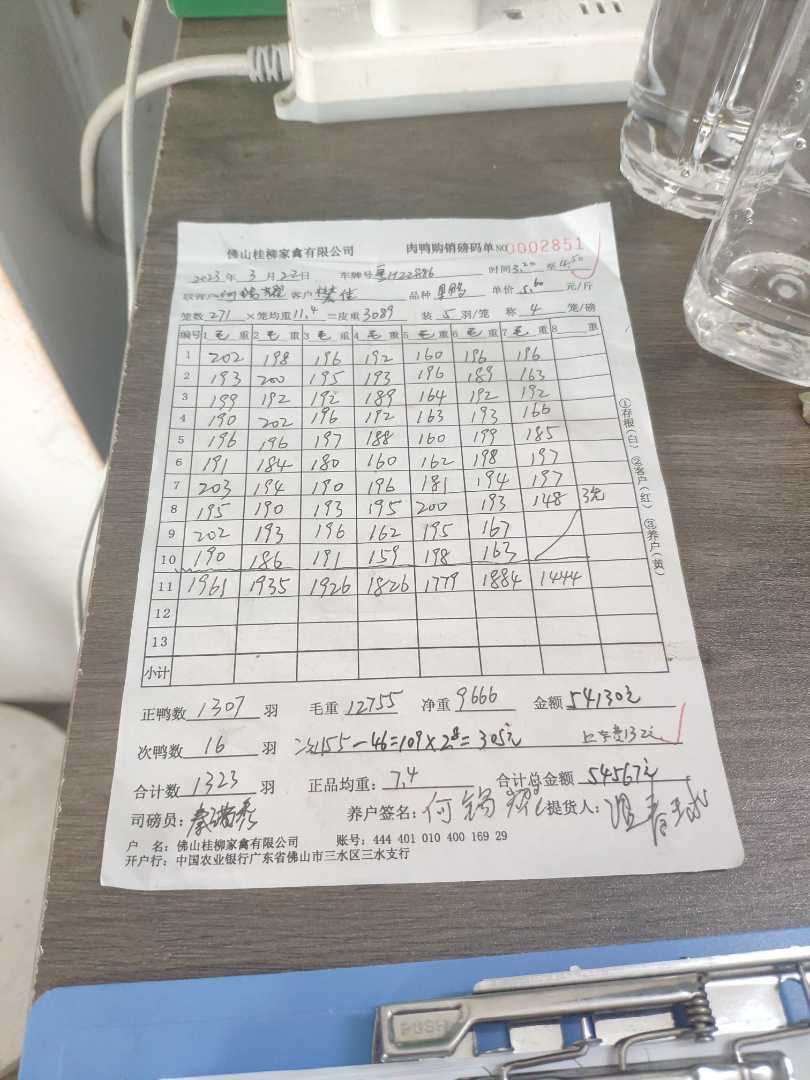 佛山桂柳家禽有限公司 肉鸭购销磅码单 NO 0002851
2023年 3月 22日 车牌号 粤H22886 时间 3.20 至 4.50
客户 樊佳 品种 单价 5.60 元/斤
笼数 271 ×笼均重 11.4 =皮重 3089 装 5 羽/笼 称 4 笼/磅
编号 1 毛 重 2 毛 重 3 毛 重 4 毛 重 5 毛 重 6 毛 重 7 毛 重 8 重
1 202 198 196 192 160 196 196
2 193 200 195 193 196 189 163
3 199 192 192 189 164 192 192
4 190 202 196 192 163 193 166
5 196 196 197 188 160 199 185
6 191 184 180 160 162 198 197
7 203 194 190 196 181 194 197
8 195 190 193 195 200 193 148 3笼
9 202 193 196 162 195 167
10 190 186 191 159 198 163
11 1961 1935 1926 1826 1779 1884 1444
12
13
小计
正鸭数 1307 羽 毛重 12755 净重 9666 金额 54130元
次鸭数 16 羽 次155-46=109×2.8=305元 上车费132元
合计数 1323 羽 正品均重: 7.4 合计总金额 54567元
司磅员: 养户签名: 何锡 提货人:
户 名: 佛山桂柳家禽有限公司 账号: 444 401 010 400 169 29
开户行: 中国农业银行广东省佛山市三水区三水支行
①存根(白) ②客户(红) ③养户(黄)
PUSH